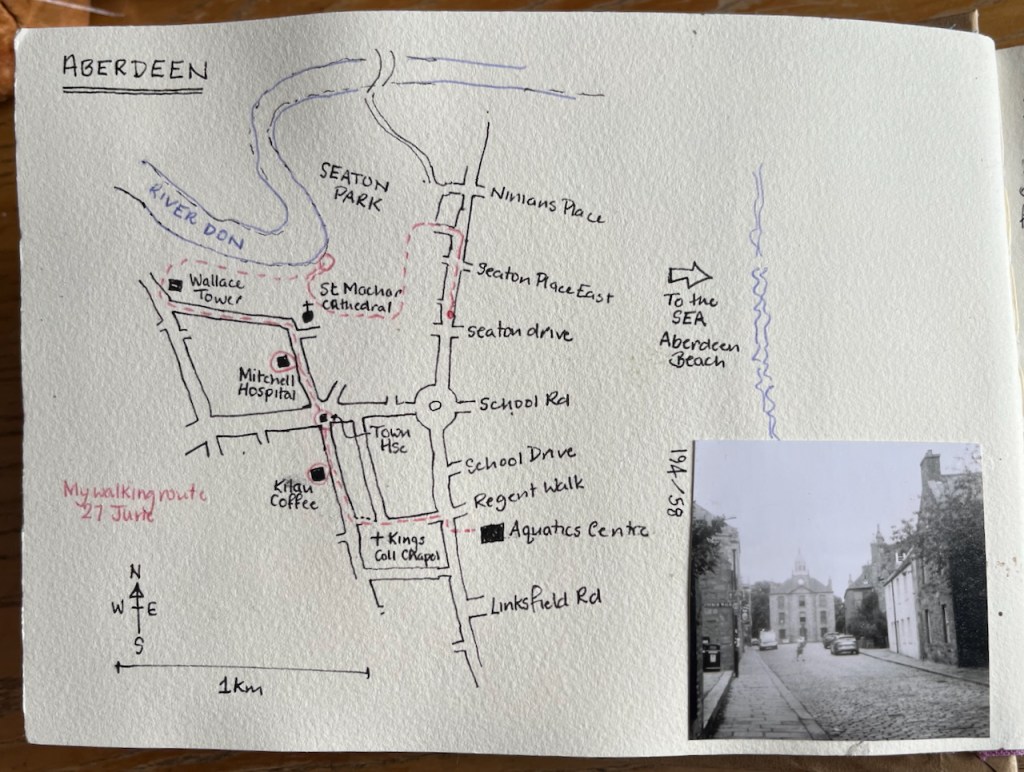 ABERDEEN
SEATON
PARK
RIVER DON
Ninians Place
Seaton Place East
Wallace
Tower
St Machar
Cathedral
To the
SEA
Aberdeen
Beach
Seaton drive
Mitchell
Hospital
School Rd
Town
Hse
School Drive
194/58
Kilau
Coffee
Regent Walk
My walking route
27 June
Aquatics Centre
Kings
Coll Chapel
N
W E
S
Linksfield Rd
1km